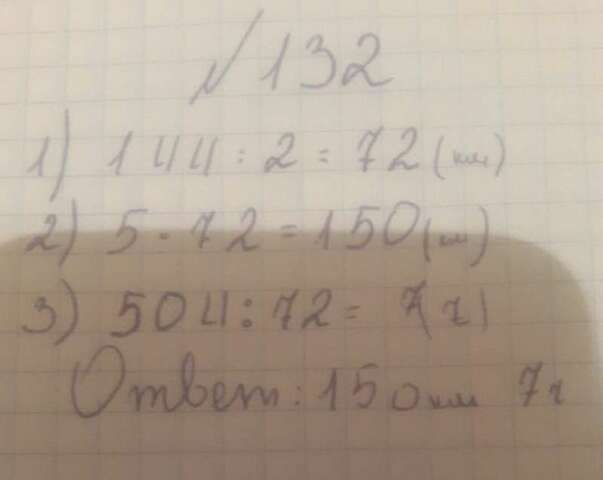 №132
1) 144:2=72(км)
2) 5·72=150(км)
3) 504:72=7(ч)
Ответ: 150км 7ч